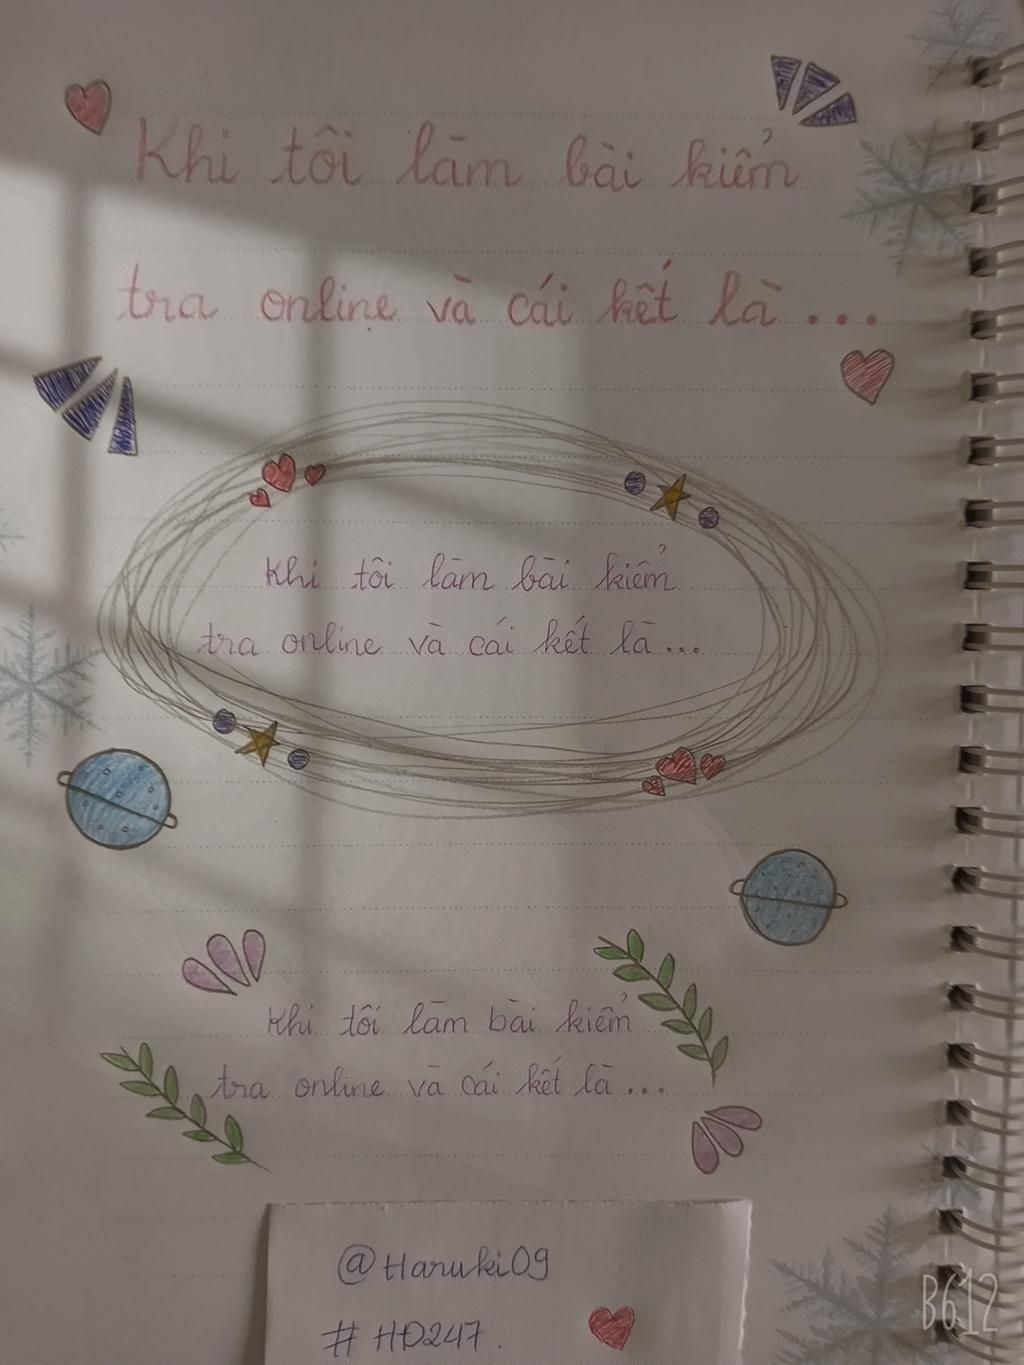 Khi tôi làm bài kiểm
tra online và cái kết là...
Khi tôi làm bài kiểm
tra online và cái kết là...
Khi tôi làm bài kiểm
tra online và cái kết là...
@Haruki09
# HD247.
B612